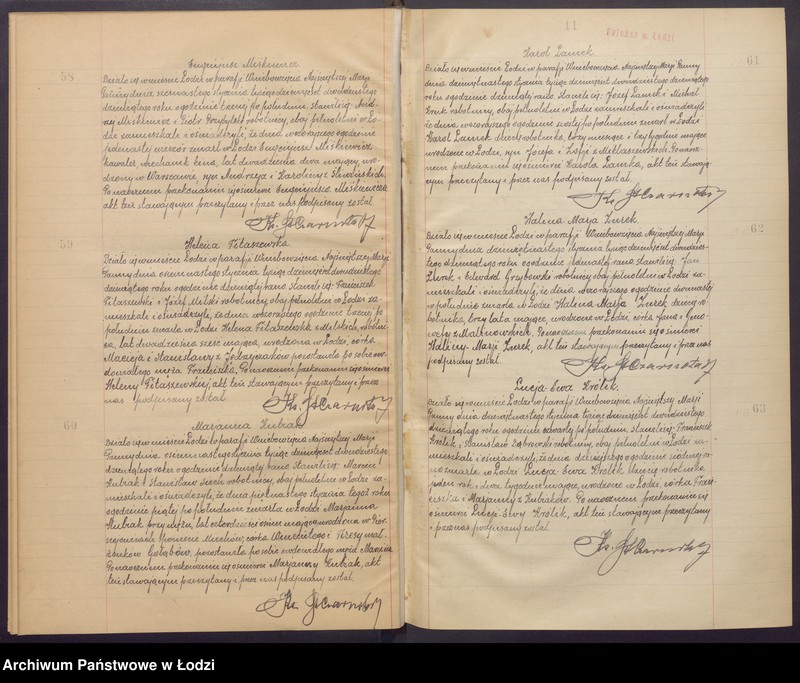 58
Eugenjusz Miśkiewicz
Działo się w mieście Łodzi w parafji Wniebowzięcia Najświętszej Marji
Panny dnia szesnastego stycznia tysiąc dziewięćset dwudziestego
dziewiątego roku o godzinie trzeciej po południu. Stawili się: And-
rzej Miśkiewicz i Piotr Przybylski robotnicy, obaj pełnoletni w Ło-
dzi zamieszkali i oświadczyli, że dnia wczorajszego o godzinie
jedenastej wieczór zmarł w Łodzi Eugenjusz Miśkiewicz
kawaler, mechanik kina, lat dwadzieścia dwa mający, uro-
dzony w Warszawie, syn Andrzeja i Karoliny z
Po naocznem przekonaniu się o śmierci Eugenjusza Miśkiewicza
akt ten stawającym przeczytany i przez nas podpisany został.
59
Helena Pitaszewska
Działo się w mieście Łodzi w parafji Wniebowzięcia Najświętszej Marji
Panny dnia osiemnastego stycznia tysiąc dziewięćset dwudziestego
dziewiątego roku o godzinie dziewiątej rano. Stawili się: Franciszek
Pitaszewski i Józef Milski robotnicy, obaj pełnoletni w Łodzi za-
mieszkali i oświadczyli, że dnia wczorajszego o godzinie trzeciej po
południu zmarła w Łodzi Helena Pitaszewska z Milskich, robotni-
ca, lat dwadzieścia sześć mająca, urodzona w Łodzi, córka
Macieja i Stanisławy z pozostawiła po sobie owdo-
wiałego męża Franciszka. Po naocznem przekonaniu się o śmierci
Heleny Pitaszewskiej, akt ten stawającym przeczytany i przez
nas podpisany został.
60
Marjanna Kubiak
Działo się w mieście Łodzi w parafji Wniebowzięcia Najświętszej Marji
Panny dnia osiemnastego stycznia tysiąc dziewięćset dwudziestego
dziewiątego roku o godzinie dziewiątej rano. Stawili się: Marcin
Kubiak i Stanisław robotnicy, obaj pełnoletni w Łodzi za-
mieszkali i oświadczyli, że dnia piętnastego stycznia tegoż roku
o godzinie piątej po południu zmarła w Łodzi Marjanna
Kubiak przy mężu, lat czterdzieści osiem mająca urodzona w
córka Wincentego i Teresy mał-
żonków Gołąbów, pozostawiła po sobie owdowiałego męża Marcina
Po naocznem przekonaniu się o śmierci Marjanny Kubiak, akt
ten stawającym przeczytany i przez nas podpisany został.
11
61
Karol Lamek
Działo się w mieście Łodzi w parafji Wniebowzięcia Najświętszej Marji Panny
dnia dziewiętnastego stycznia tysiąc dziewięćset dwudziestego dziewiątego
roku o godzinie dziewiątej rano. Stawili się: Józef Lamek i Michał
Kruk robotnicy, obaj pełnoletni w Łodzi zamieszkali i oświadczyli
że dnia wczorajszego o godzinie szóstej po południu zmarł w Łodzi
Karol Lamek dziecko robotnika, trzy miesiące i trzy tygodnie mające,
urodzone w Łodzi, syn Józefa i Zofji z Po naocz-
nem przekonaniu się o śmierci Karola Lamka, akt ten stawają-
cym przeczytany i przez nas podpisany został.
62
Halina Marja Żurek
Działo się w mieście Łodzi w parafji Wniebowzięcia Najświętszej Marji
Panny dnia dziewiętnastego stycznia tysiąc dziewięćset dwudzies-
tego dziewiątego roku o godzinie jedenastej rano. Stawili się: Jan
Żurek i Edward Grzybowski robotnicy, obaj pełnoletni w Łodzi za-
mieszkali i oświadczyli, że dnia wczorajszego o godzinie dwunastej
w południe zmarła w Łodzi Halina Marja Żurek dziecko ro-
botnika, trzy lata mające, urodzone w Łodzi, córka Jana i Geno-
wefy z Malinowskich. Po naocznem przekonaniu się o śmierci
Haliny-Marji Żurek, akt ten stawającym przeczytany i przez nas
podpisany został.
63
Łucja-Ewa Królik
Działo się w mieście Łodzi w parafji Wniebowzięcia Najświętszej Marji
Panny dnia dwudziestego stycznia tysiąc dziewięćset dwudziestego
dziewiątego roku o godzinie czwartej po południu. Stawili się: Franciszek
Królik i Stanisław Dąbrowski robotnicy, obaj pełnoletni w Łodzi za-
mieszkali i oświadczyli, że dnia dzisiejszego o godzinie ra-
no zmarła w Łodzi Łucja-Ewa Królik dziecię robotnika
jeden rok i dwa tygodnie mające, urodzone w Łodzi, córka Fran-
ciszka i Marjanny z Kubiaków. Po naocznem przekonaniu się
o śmierci Łucji-Ewy Królik, akt ten stawającym przeczytany
i przez nas podpisany został.
Archiwum Państwowe w Łodzi